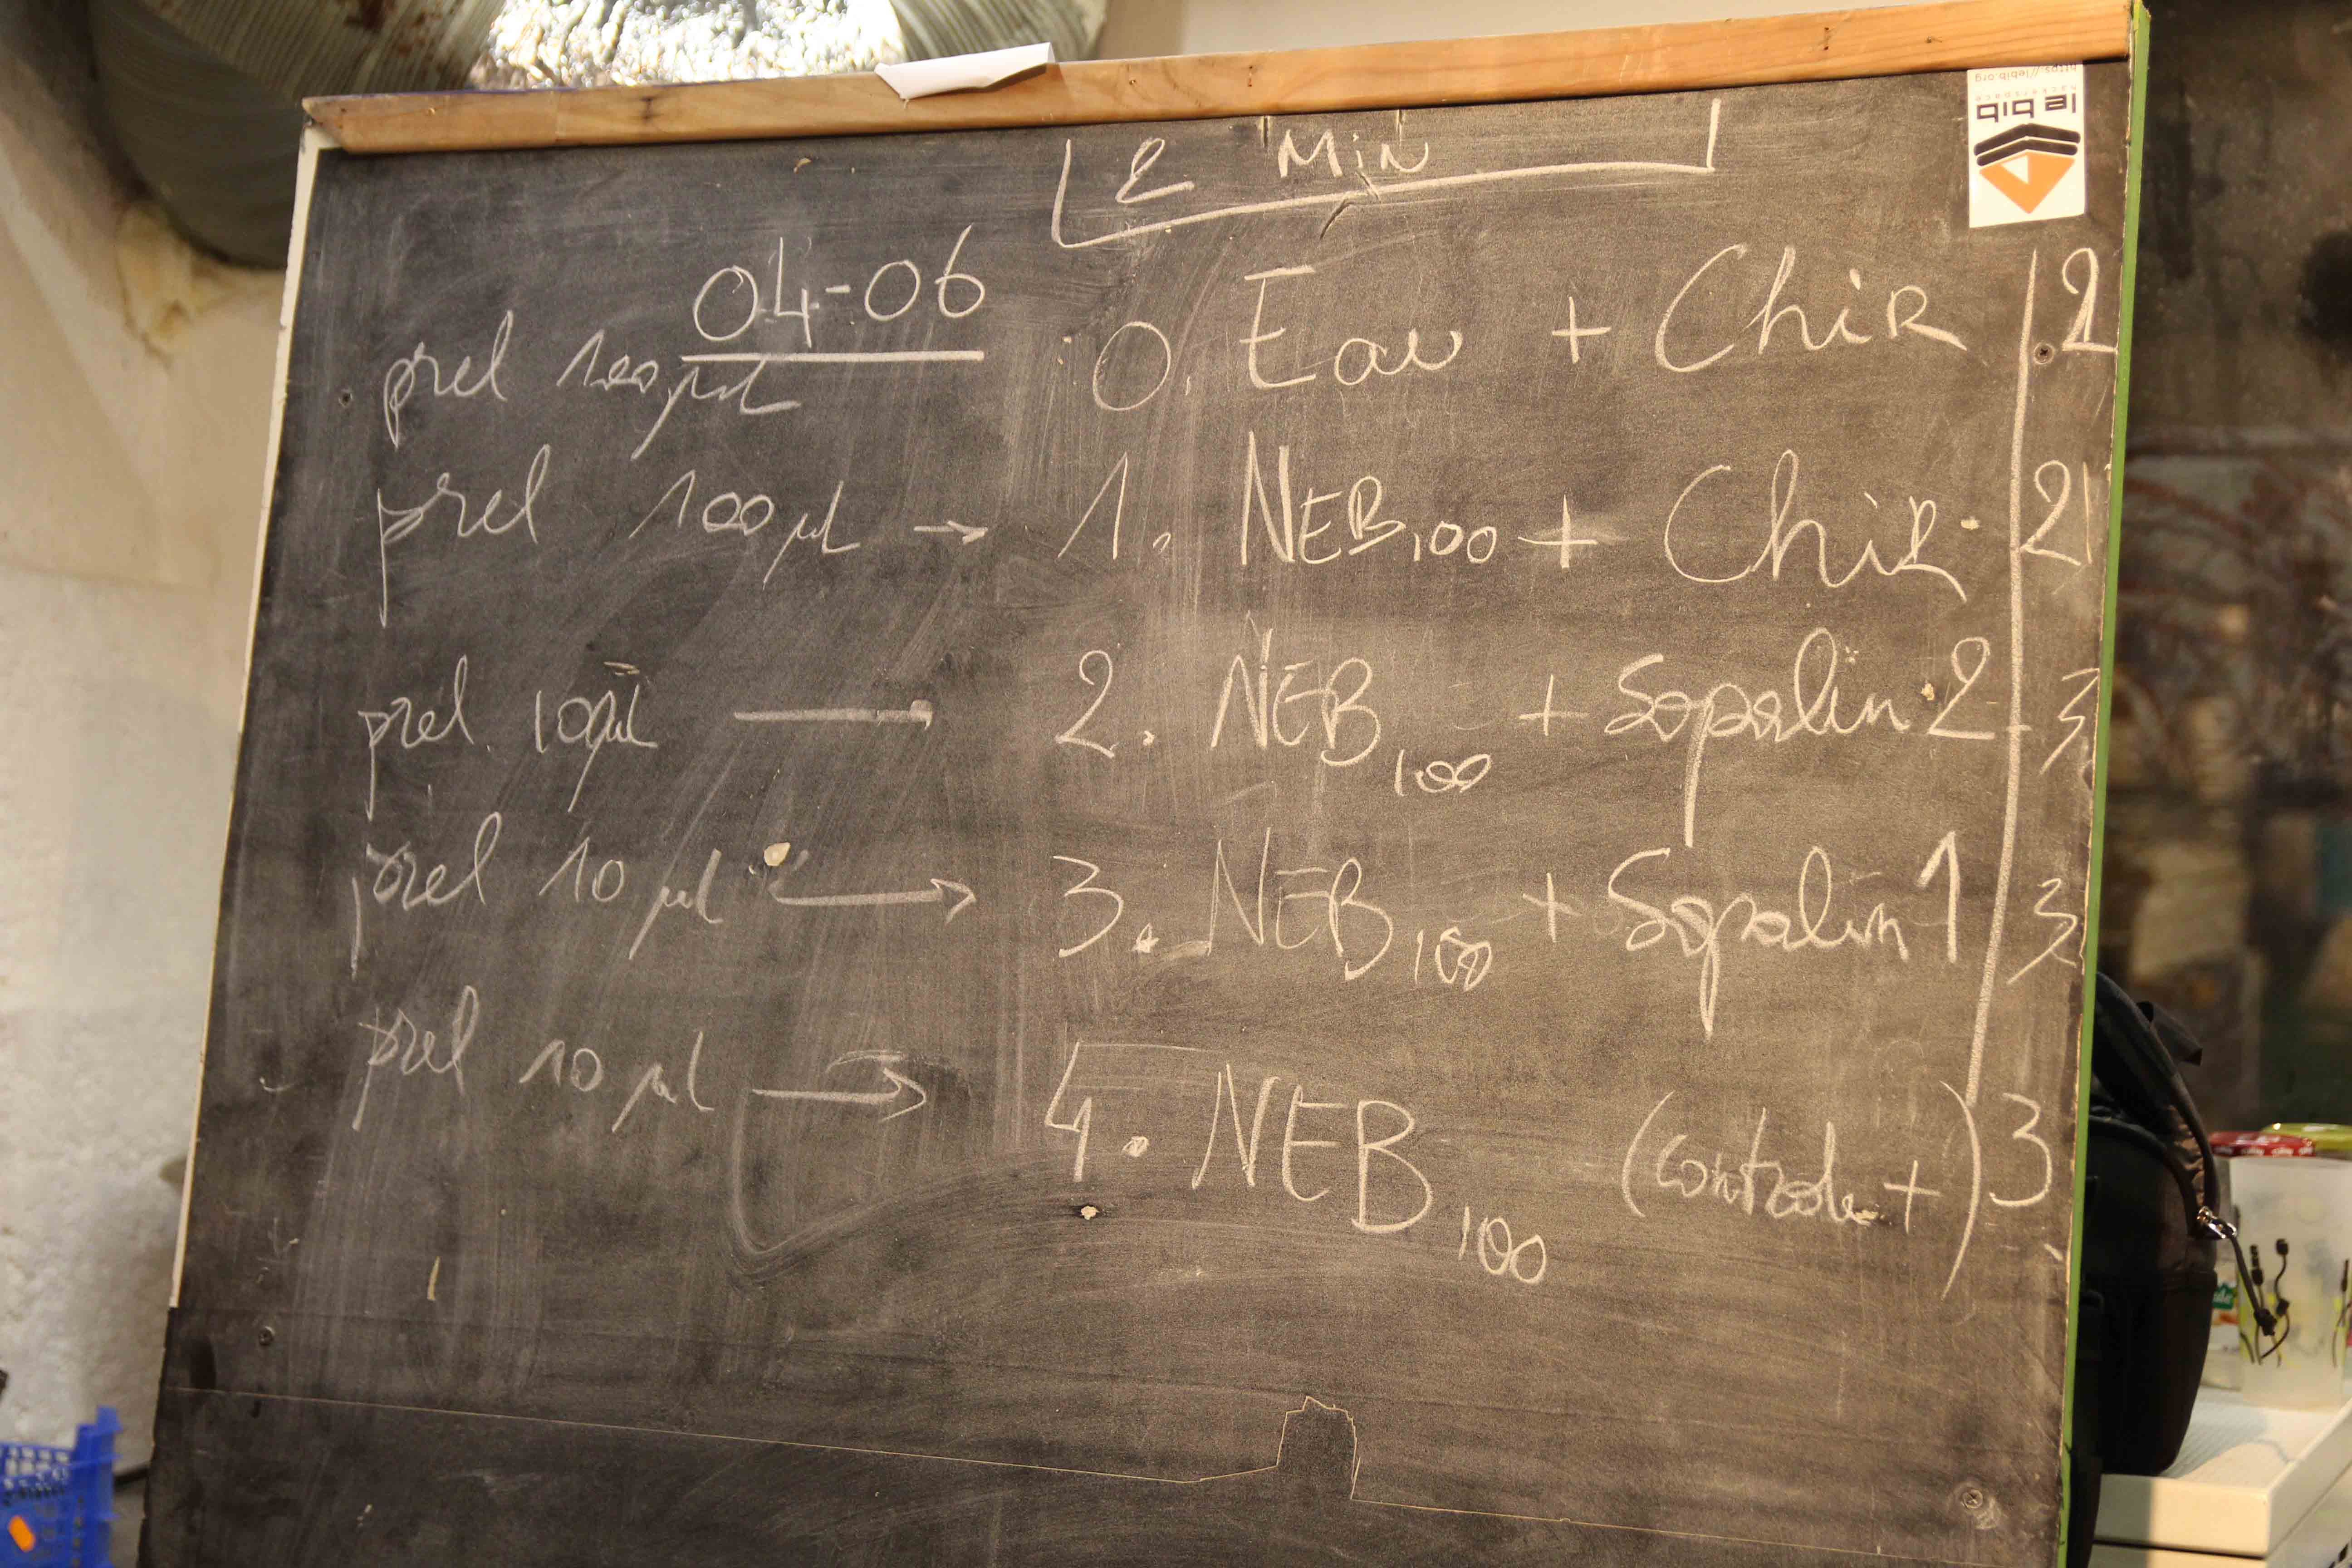 2 Min
https://lebib.org
hackerspace
le bib
04-06
prel 100 µl 0. Eau + Chir 2
prel 100 µl → 1. NEB 100 + Chir 2
prel 10 µl → 2. NEB 100 + Sopalin 2 3
prel 10 µl → 3. NEB 100 + Sopalin 1 3
prel 10 µl → 4. NEB 100 (controle +) 3